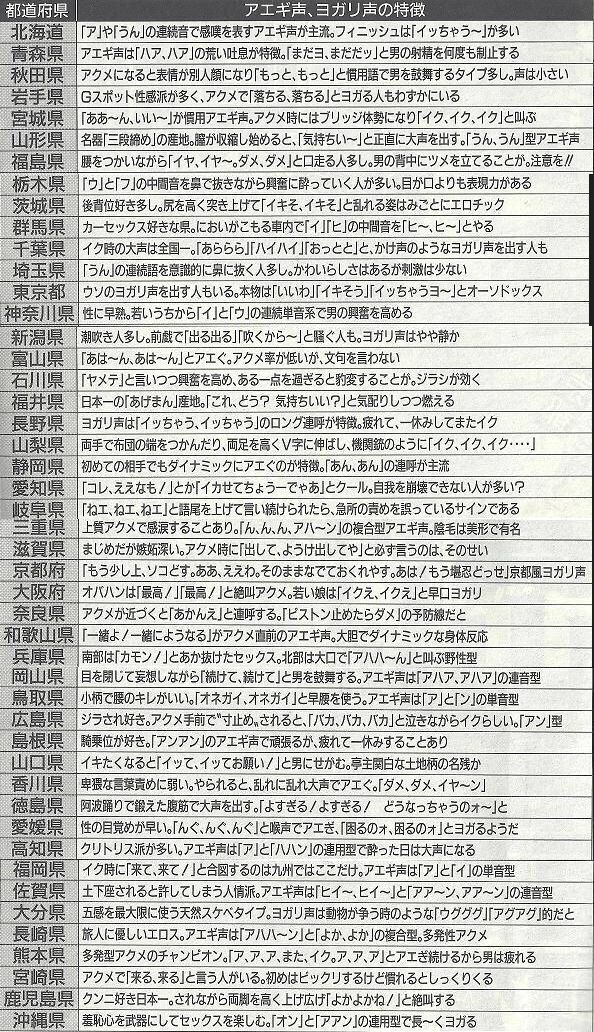 都道府県 アエギ声、ヨガリ声の特徴
北海道 「ア」や「うん」の連続音で感嘆を表すアエギ声が主流。フィニッシュは「イッちゃう〜」が多い
青森県 アエギ声は「ハア、ハア」の荒い吐息が特徴。「まだヨ、まだだッ」と男の射精を何度も制止する
秋田県 アクメになると表情が別人顔になり「もっと、もっと」と慣用語で男を鼓舞するタイプ多し。声は小さい
岩手県 Gスポット性感派が多く、アクメで「落ちる、落ちる」とヨガる人もわずかにいる
宮城県 「ああ〜ん、いい〜」が慣用アエギ声。アクメ時にはブリッジ体勢になり「イク、イク、イク」と叫ぶ
山形県 名器「三段締め」の産地。膣が収縮し始めると、「気持ちい〜」と正直に大声を出す。「うん、うん」型アエギ声
福島県 腰をつかいながら「イヤ、イヤ〜。ダメ、ダメ」と口走る人多し。男の背中にツメを立てることが。注意を!!
栃木県 「ウ」と「フ」の中間音を鼻で抜きながら興奮に酔っていく人が多い。目が口よりも表現力がある
茨城県 後背位好き多し。尻を高く突き上げて「イキそ、イキそ」と乱れる姿はみごとにエロチック
群馬県 カーセックス好きな県。においがこもる車内で「イ」「ヒ」の中間音を「ヒ〜、ヒ〜」とやる
千葉県 イク時の大声は全国一。「あららら」「ハイハイ」「おっとと」と、かけ声のようなヨガリ声を出す人も
埼玉県 「うん」の連続語を意識的に鼻に抜く人多し。かわいらしさはあるが刺激は少ない
東京都 ウソのヨガリ声を出す人もいる。本物は「いいわ」「イキそう」「イッちゃうヨ〜」とオーソドックス
神奈川県 性に早熟。若いうちから「イ」と「ウ」の連続単音系で男の興奮を高める
新潟県 潮吹き人多し。前戯で「出る出る」「吹くから〜」と騒ぐ人も。ヨガリ声はやや静か
富山県 「あは〜ん、あは〜ん」とアエぐ。アクメ率が低いが、文句を言わない
石川県 「ヤメテ」と言いつつ興奮を高め、ある一点を過ぎると豹変することが。ジラシが効く
福井県 日本一の「あげまん」産地。「これ、どう? 気持ちいい?」と気配りしつつ燃える
長野県 ヨガリ声は「イッちゃう、イッちゃう」のロング連呼が特徴。疲れて、一休みしてまたイク
山梨県 両手で布団の端をつかんだり、両足を高くV字に伸ばし、機関銃のように「イク、イク、イク・・・・」
静岡県 初めての相手でもダイナミックにアエぐのが特徴。「あん、あん」の連呼が主流
愛知県 「コレ、ええなも!」とか「イカせてちょうーでゃあ」とクール。自我を崩壊できない人が多い?
岐阜県 「ねエ、ねエ、ねエ」と語尾を上げて言い続けられたら、急所の責めを誤っているサインである
三重県 上質アクメで感涙することあり。「ん、ん、ん、アハ〜ン」の複合型アエギ声。陰毛は美形で有名
滋賀県 まじめだが嫉妬深い。アクメ時に「出して、ようけ出してや」と必ず言うのは、そのせい
京都府 「もう少し上、ソコどす。ああ、ええわ。そのままなでておくれやす。あは!もう堪忍どっせ」京都風ヨガリ声
大阪府 オバハンは「最高!」「最高!」と絶叫アクメ。若い娘は「イクえ、イクえ」と早口ヨガリ
奈良県 アクメが近づくと「あかんえ」と連呼する。「ピストン止めたらダメ」の予防線だと
和歌山県 「一緒よ!一緒にようなる」がアクメ直前のアエギ声。大胆でダイナミックな身体反応
兵庫県 南部は「カモン!」とあか抜けたセックス。北部は大口で「アハハ〜ん」と叫ぶ野性型
岡山県 目を閉じて妄想しながら「続けて、続けて」と男を鼓舞する。アエギ声は「アハア、アハア」の連音型
鳥取県 小柄で腰のキレがいい。「オネガイ、オネガイ」と早腰を使う。アエギ声は「ア」と「ン」の単音型
広島県 ジラされ好き。アクメ手前で〝寸止め〟されると、「バカ、バカ、バカ」と泣きながらイクらしい。「アン」型
島根県 騎乗位が好き。「アンアン」のアエギ声で頑張るか、疲れて一休みすることあり
山口県 イキたくなると「イッて、イッてお願い!」と男にせがむ。亭主関白な土地柄の名残か
香川県 卑猥な言葉責めに弱い。やられると、乱れに乱れ大声でアエぐ。「ダメ、ダメ、イヤ〜ン」
徳島県 阿波踊りで鍛えた腹筋で大声を出す。「よすぎる!よすぎる! どうなっちゃうのォ〜」と
愛媛県 性の目覚めが早い。「んぐ、んぐ、んぐ」と喉声でアエぎ、「困るのォ、困るのォ」とヨガるようだ
高知県 クリトリス派が多い。アエギ声は「ア」と「ハハン」の連用型で酔った日は大声になる
福岡県 イク時に「来て、来て!」と合図するのは九州ではここだけ。アエギ声は「ア」と「イ」の単音型
佐賀県 土下座されると許してしまう人情派。アエギ声は「ヒイ〜、ヒイ〜」と「アア〜ン、アア〜ン」の連音型
大分県 五感を最大限に使う天然スケベタイプ。ヨガリ声は動物が争う時のような「ウグググ」「アグアグ」的だと
長崎県 旅人に優しいエロス。アエギ声は「アハハ〜ン」と「よか、よか」の複合型。多発性アクメ
熊本県 多発型アクメのチャンピオン。「ア、ア、ア、また、イク。ア、ア、ア」とアエぎ続けるから男は疲れる
宮崎県 アクメで「来る、来る」と言う人がいる。初めはビックリするけど慣れるとしっくりくる
鹿児島県 クンニ好き日本一。されながら両脚を高く上げ広げ「よかよかね!」と絶叫する
沖縄県 羞恥心を武器にしてセックスを楽しむ。「オン」と「アアン」の連用型で長〜くヨガる